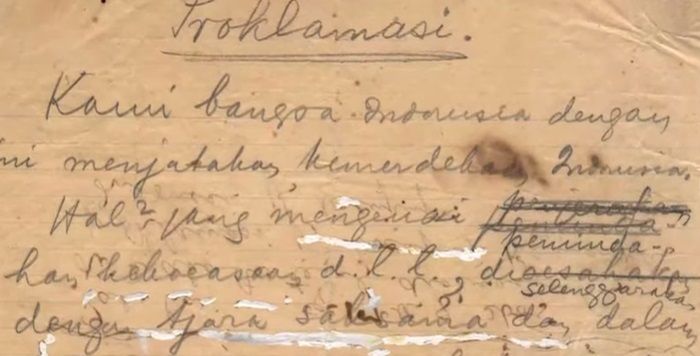 Proklamasi.
Kami bangsa Indonesia dengan
ni menjatakan kemerdekaan Indonesia.
Hal² jang mengenai penjerahan
peminda-
han kekoeasaan d.l.l., dioesahakan
selenggarakan
dengan tjara saksama dan dalam